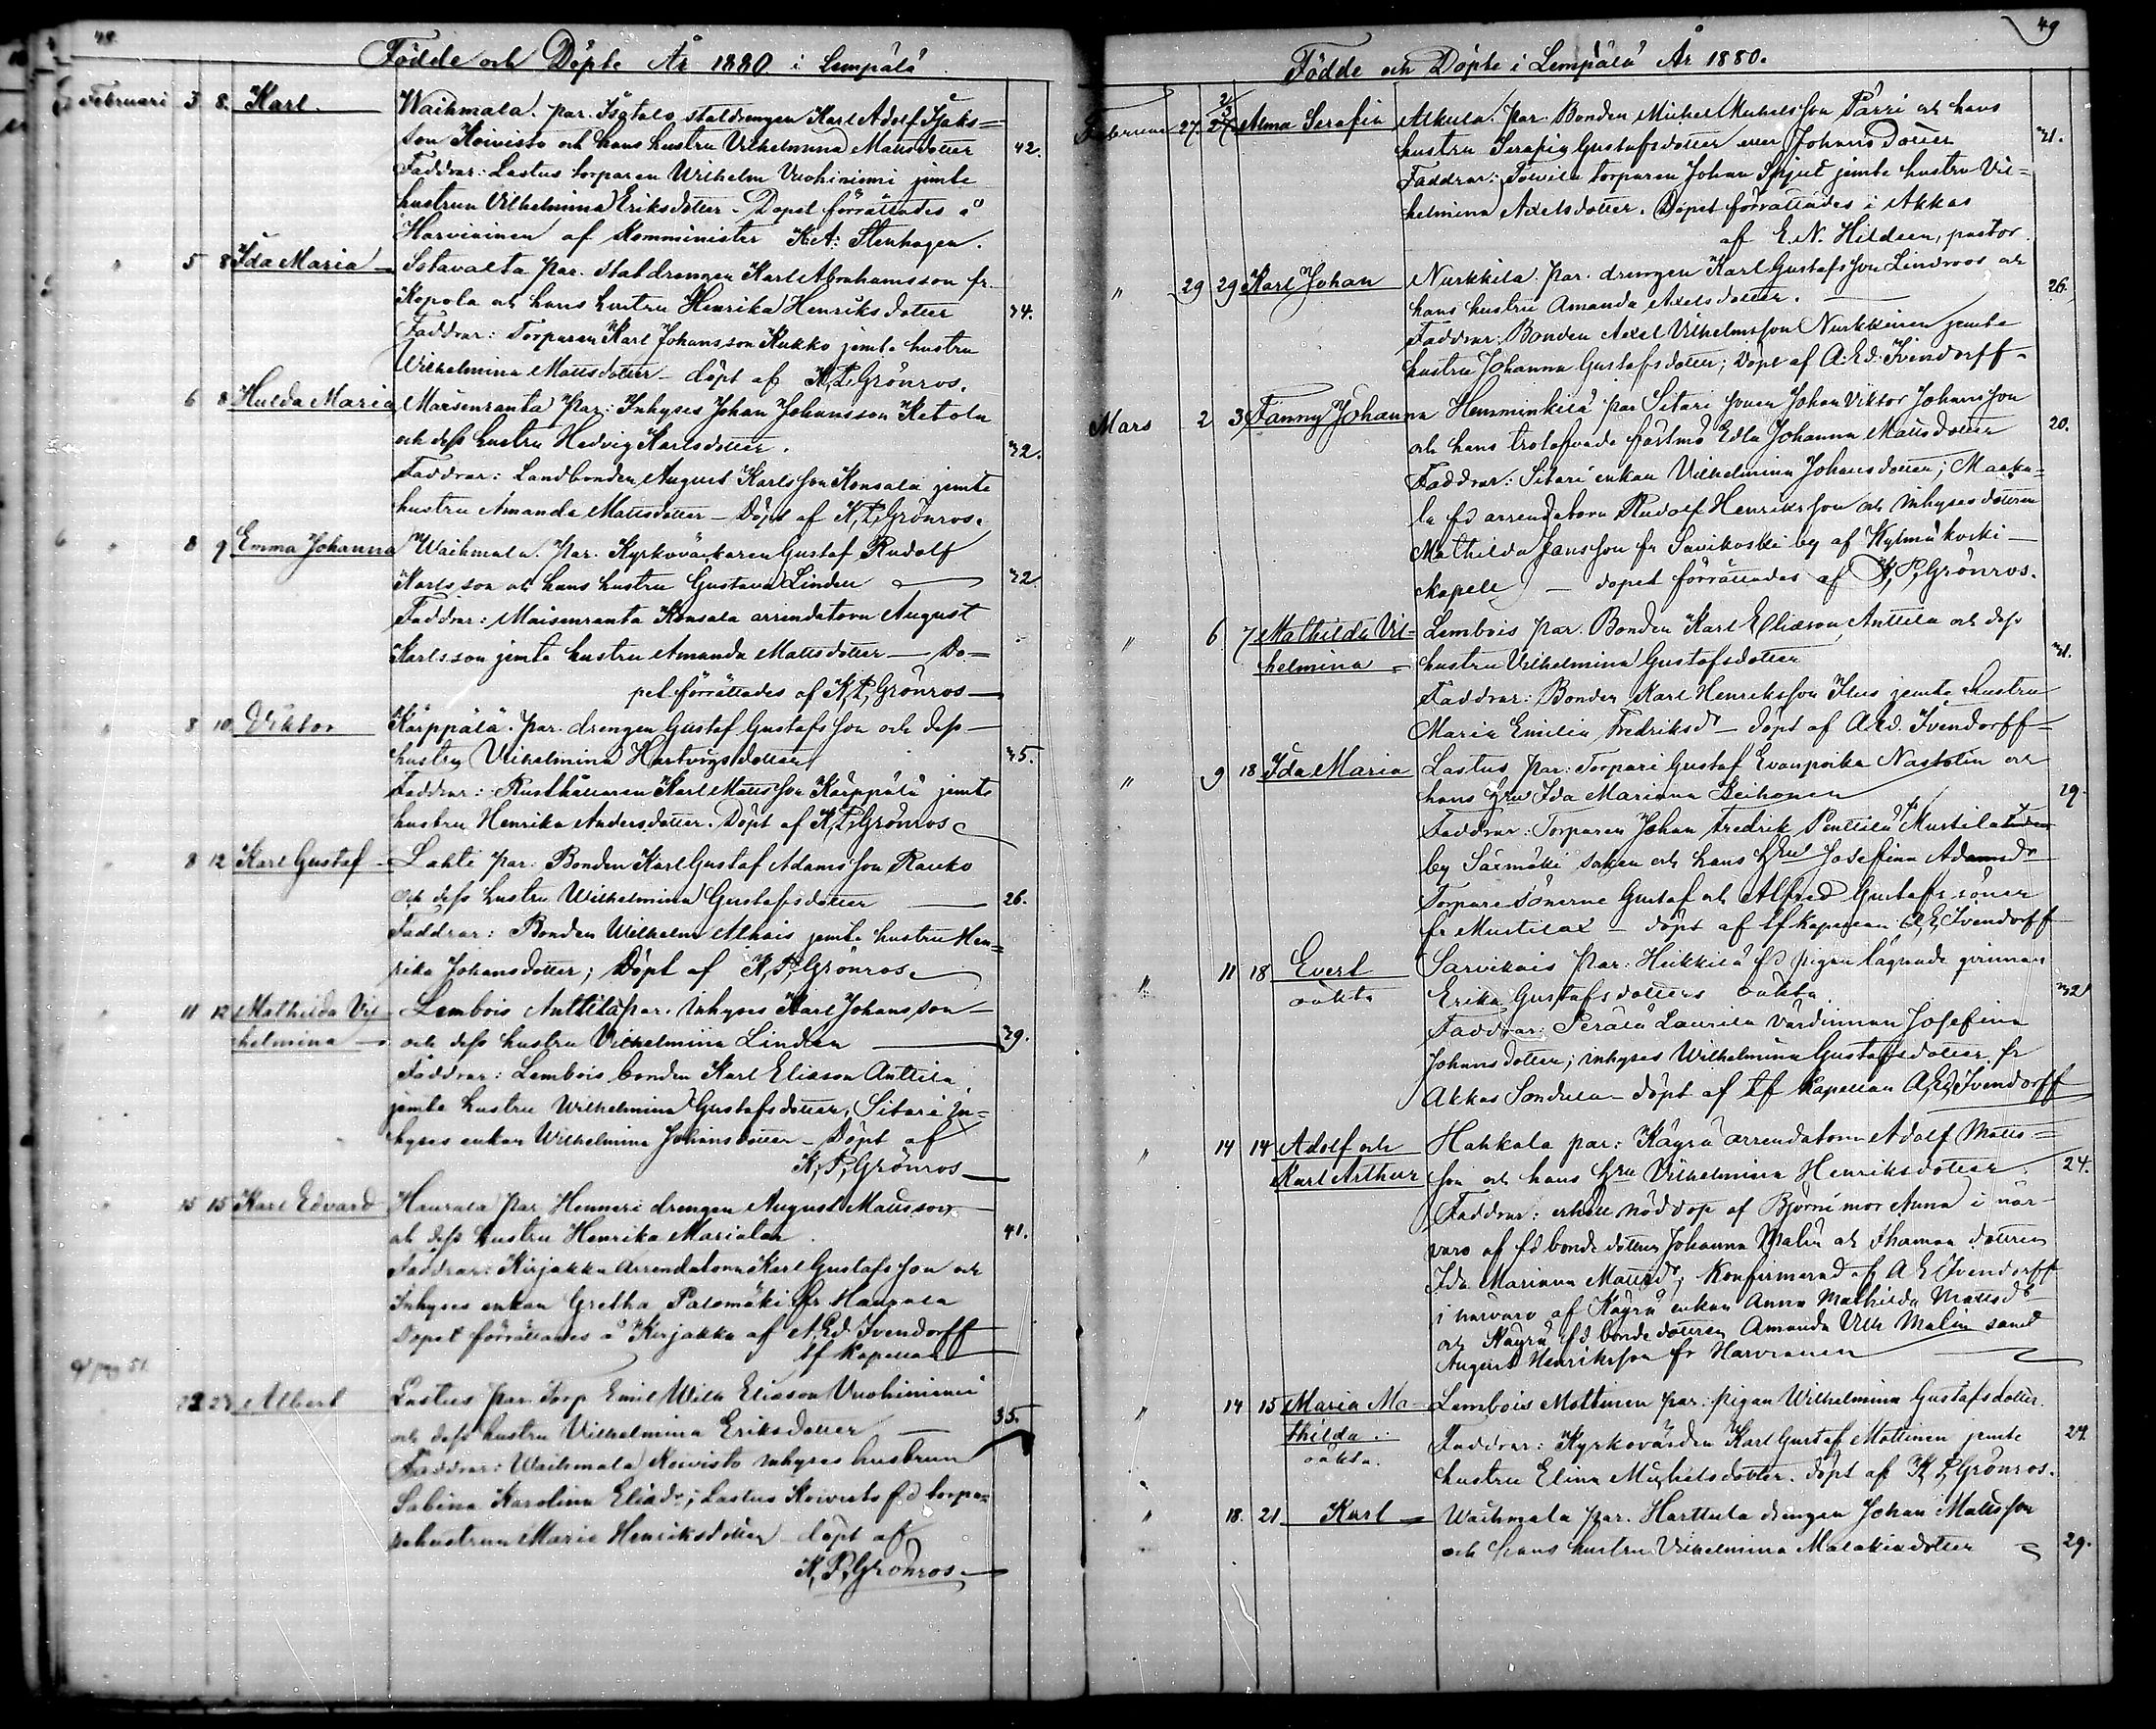 48
Födde och Döpte År 1880 i Lempälä
Februari 3 8. Karl. Waihmala. par. Isotalo staldrengen Karl Adolf Isaks=
son Koivisto och hans hustru Vilhelmina Mattsdotter 42.
Faddrar: Lastus torparen Wilhelm Vuohiniemi jemte
hustrun Vilhelmina Eriksdotter. Dopet förrättades å
Harvininen af Komminister K.A. Stenhagen.
" 5 8 Ida Maria Sotavalta par. Staldrengen Karl Abrahamsson fr.
Kopola och hans hustru Henrika Henriksdotter 34.
Faddrar: Torparen Karl Johansson Kukko jemte hustru
Wilhelmina Mattsdotter – döpt af K,P,Grönros.
6 8 Hulda Maria Maisenranta Par: Inhyses Johan Johansson Ketola
och dess hustru Hedvig Karlsdotter. 32.
Faddrar: Landbonden August Karlsson Konsala jemte
hustru Amanda Mattsdotter – Döpt af K,P,Grönros.
" 8 9 Emma Johanna Waihmala. Par. Kyrkoväktaren Gustaf Rudolf
Karlsson och hans hustru Gustava Linden 32
Faddrar: Maisenranta Konsala arrendatorn August
Karlsson jemte hustru Amanda Mattsdotter — Do=
pet förrättades af K,P,Grönros —
" 8 10 Viktor Kärppälä. par. drengen Gustaf Gustafsson och dess
hustru Vilhelmina Hartvigsdotter 35.
Faddrar: Rusthållaren Karl Mattsson Kärppälä jemte
hustru Henrika Andersdotter. Döpt af K,P,Grönros
" 8 12 Karl Gustaf – Lahti par: Bonden Karl Gustaf Adamsson Rauko
och dess hustru Wilhelmina Gustafsdotter — 26.
Faddrar: Bonden Wilhelm Alhais jemte hustru Hen=
rika Johansdotter; Döpt af K,P,Grönros.
" 11 12 Mathilda Vil- Lembois Anttila par. Inhyses Karl Johansson
helmina — och dess hustru Vilhelmiina Linden — 39.
Faddrar: Lembois bonden Karl Eliason Anttila
jemte hustru Wilhelmina Gustafsdotter, Sitari In=
hyses enkan Wilhelmina Johansdotter – Döpt af
K,P,Grönros —
" 15 15 Karl Edvard Haurala par Henneri drengen August Mattsson
och dess hustru Henrika Marialan 41.
Faddrar: Kirjakka Arrendatorn Karl Gustafsson och
Inhyses enkan Gretha Palomäki fr Haurala
Dopet förrättades å Kirjakka af A,Ed. Ivendorff
tf kapellan
pag 51.
22 23 Albert Lastus par. Torp Emil Wilh Eliason Vuohiniemi
och dess hustru Vilhelmina Eriksdotter — 35.
Faddrar: Waihmala Koivisto inhyses hustrun
Sabina Karolina Eliasdr; Lastus Koivisto f.d torpa=
rehustrun Maria Henriksdotter döpt af
K,P,Grönros —
49
Födde och Döpte i Lempälä År 1880.
Februari 27 2/3 27 Alma Serafia Alkula. Par. Bonden Michel Michelsson Pärri och hans
hustru Serafia Gustafsdotter eller Johansdotter 31.
Faddrar: torparen Johan jemte hustru Vil=
helmina Axelsdotter. Dopet förrättades i Akkas
af E.N. Hildeen, pastor.
" 29 29 Karl Johan Nurkkila par. drengen Karl Gustafsson Lindroos och
hans hustru Amanda Axelsdotter. — 26.
Faddrar: Bonden Axel Vilhelmsson Nurkkinen jemte
hustru Johanna Gustafsdotter; Döpt af A.Ed. Ivendorff –
Mars 2 3 Fanny Johanna Hemminkilä par Sitari sonen Johan Viktor Johansson
och hans trolofvade fästmö Edla Johanna Mattsdotter 20.
Faddrar: Sitari enkan Vilhelmina Johansdotter; Maaku-
la fd arrendatorn Rudolf Henriksson och inhyses dottren
Mathilda Jansson fr Savikoski by af Kylmäkoski
kapell — dopet förrättades af K,P,Grönros.
" 6 7 Mathilda Vil- Lembois par. Bonden Karl Eliason Anttila och dess
helmina – hustru Vilhelmina Gustafsdotter 31.
Faddrar: Bonden Karl Henriksson Ilus jemte hustru
Maria Emilia Fredriksdr – döpt af A.Ed. Ivendorff
" 9 18 Ida Maria Lastus par: Torpari Gustaf Evanpoika Nastolin och
hans hru Ida Mariana Leihonen 29.
Faddrar: Torparen Johan Fredrik Penttilä fr Mustila
by Sääxmäki socken och hans hru Josefina Adamsdr
Torpare sönerne Gustaf och Alfred Gustafssöner
fr Mustila – döpt af tf kapellan A,E,Ivendorff
" 11 18 Evert Sarvikais par: Heikkilä fd pigan lägrade qvinnan
oäkta Erika Gustafsdotters oäkta 32
Faddrar: Perälä Laurila värdinnan Josefina
Johansdotter; inhyses Wilhelmina Gustafsdotter fr
Akkas Sondula – döpt af tf Kapellan A,Ed,Ivendorff
" 14 14 Adolf och Hahkala par: Käyrä arrendatorn Adolf Matts=
Karl Arthur son och hans hru Vilhelmina Henriksdotter 24.
Faddrar: erhöll nöddop af Björni mor Anna i när-
varo af fd bonde dottren Johanna Malin och dottren
Ida Mariana Mattsdr; Konfirmerad af A E Ivendorff
i närvaro af Käyrä enkan Anna Mathilda Mattsdr
och Käyrä fd bonde dottren Amanda Vilh Malin samt
August Henriksson fr Harvianen
" 14 15 Maria Ma- Lembois Mottinen par: pigan Wilhelmina Gustafsdotter.
thilda. Faddrar: Kyrkovärden Karl Gustaf Mottinen jemte 24.
oäkta. hustru Elina Michelsdotter. döpt af K,P,Grönros.
" 18. 21. Karl – Waihmala par. Harttula drengen Johan Mattsson
och hans hustru Vilhelmina Malakiasdotter 29.